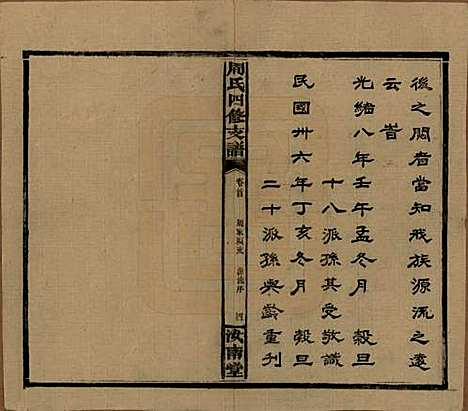 後之閱者當知我族源流之遠
云耆
光緒八年壬午孟冬月 穀旦
十八派孫其受敬識
民國卅六年丁亥冬月 穀旦
二十派孫奧齡重刊
周氏四修支譜 卷首 四 汝南堂